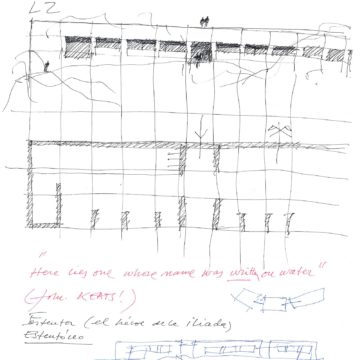 LZ
"Here was one whose name was writ on water"
(John KEATS!)
Estentor (el héroe de la iliada)
Estentóreo